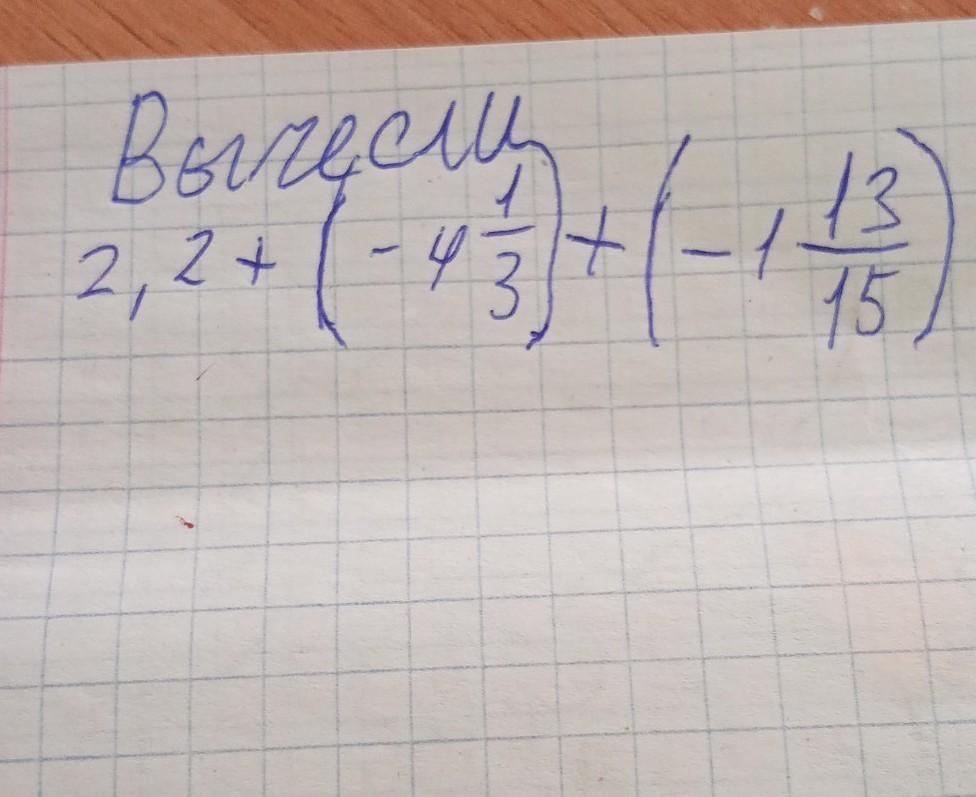 Вычесли
2,2 + (-4 1/3) + (-1 13/15)